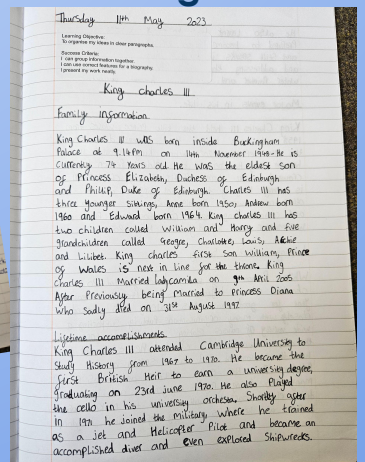 Thursday 11th May 2023
Learning Objective:
To organise my ideas in clear paragraphs.
Success Criteria:
I can group information together.
I can use correct features for a biography.
I present my work neatly.
King charles III
Family Information
King Charles III was born inside Buckingham
Palace at 9.14pm on 14th November 1948. He is
currently 74 years old. He was the eldest son
of Princess Elizabeth, Duchess of Edinburgh
and Phillip, Duke of Edinburgh. Charles III has
three younger siblings, Anne born 1950, Andrew born
1960 and Edward born 1964. King charles III has
two children called William and Harry and five
grandchildren called George, Charlotte, Louis, Archie
and Lilibet. King charles first son William, Prince
of Wales is next in line for the throne. King
charles III Married lady camila on 9th April 2005
After Previously being Married to Princess Diana
Who sadly died on 31st August 1997
Lifetime accomplishments
King Charles III attended Cambridge University to
Study History from 1967 to 1970. He became the
first British Heir to earn a university degree,
graduating on 23rd june 1970. He also Played
the cello in his university orchesta. Shortly after
in 1971 he joined the military, where he trained
as a jet and Helicopter Pilot and became an
accomplished diver and even explored Shipwrecks.